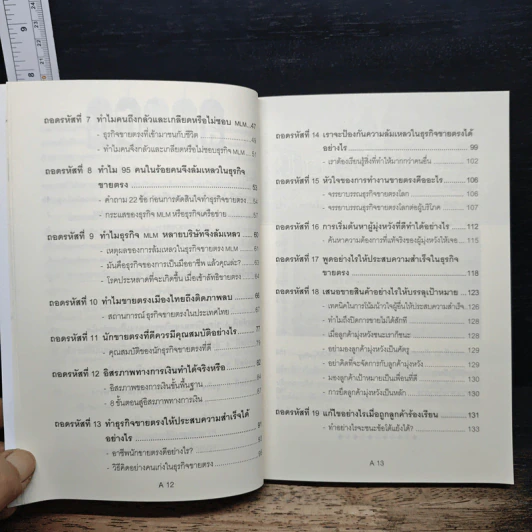 ถอดรหัสที่ 7 ทำไมคนถึงกลัวและเกลียดหรือไม่ชอบ MLM...47
- ธุรกิจขายตรงที่เข้ามาชนกับชีวิต
- ทำไมคนจึงกลัวและเกลียดหรือไม่ชอบธุรกิจ MLM .. 51
ถอดรหัสที่ 8 ทำไม 95 คนในร้อยคนจึงล้มเหลวในธุรกิจ
ขายตรง
- คำถาม 22 ข้อ ก่อนการตัดสินใจทำธุรกิจขายตรง
- กระแสของธุรกิจ MLM หรือธุรกิจเครือข่าย
ถอดรหัสที่ 9 ทำไมธุรกิจ MLM หลายบริษัทจึงล้มเหลว 60
- เหตุผลของการล้มเหลวในธุรกิจขายตรง MLM
- มันคือธุรกิจของการเป็นมืออาชีพ แล้วคุณล่ะ?
- โรคประหลาดที่จะเกิดขึ้น เมื่อเข้าลัทธิขายตรง
ถอดรหัสที่ 10 ทำไมขายตรงเมืองไทยถึงติดภาพลบ 66
- สถานการณ์ ธุรกิจขายตรงในประเทศไทย
ถอดรหัสที่ 11 นักขายตรงที่ดีควรมีคุณสมบัติอย่างไร 77
- คุณสมบัติของนักธุรกิจขายตรงที่ดี
ถอดรหัสที่ 12 อิสรภาพทางการเงินทำได้จริงหรือ 82
- อิสรภาพของการเงินขั้นพื้นฐาน
- 8 ขั้นตอนสู่อิสรภาพทางการเงิน
ถอดรหัสที่ 13 ทำธุรกิจขายตรงให้ประสบความสำเร็จได้
อย่างไร
- อาชีพนักขายตรงดีอย่างไร?
- วิธีคิดอย่างคนเก่งในธุรกิจขายตรง
A 12
ถอดรหัสที่ 14 เราจะป้องกันความล้มเหลวในธุรกิจขายตรงได้
อย่างไร 99
- เราต้องเรียนรู้สิ่งที่ทำให้มากกว่าคนอื่น 102
ถอดรหัสที่ 15 หัวใจของการทำงานขายตรงคืออะไร 106
- จรรยาบรรณธุรกิจขายตรงโลก 107
- จรรยาบรรณธุรกิจขายตรงโลกต่อผู้บริโภค 107
ถอดรหัสที่ 16 การเริ่มต้นหาผู้มุ่งหวังที่ดีทำได้อย่างไร 112
- ค้นหาความต้องการที่แท้จริงของผู้มุ่งหวังให้เจอ 115
ถอดรหัสที่ 17 พูดอย่างไรให้ประสบความสำเร็จในธุรกิจ
ขายตรง 118
ถอดรหัสที่ 18 เสนอขายสินค้าอย่างไรให้บรรลุเป้าหมาย 123
- เทคนิคในการโน้มน้าวใจผู้อื่นให้ประสบความสำเร็จ 
- ทำไมถึงปิดการขายไม่ได้สักที
- เมื่อลูกค้ามุ่งหวังชนะเราก็ชนะ 128
- อย่ามองลูกค้ามุ่งหวังเป็นศัตรู 128
- อย่าคิดที่จะจัดการกับลูกค้ามุ่งหวัง 129
- มองลูกค้าเป้าหมายเป็นเพื่อนที่ดี 129
- การยึดลูกค้ามุ่งหวังเป็นหลัก 130
ถอดรหัสที่ 19 แก้ไขอย่างไรเมื่อถูกลูกค้าร้องเรียน 131
- ทำอย่างไรจะชนะข้อโต้แย้งได้? 133
A 13
9
8